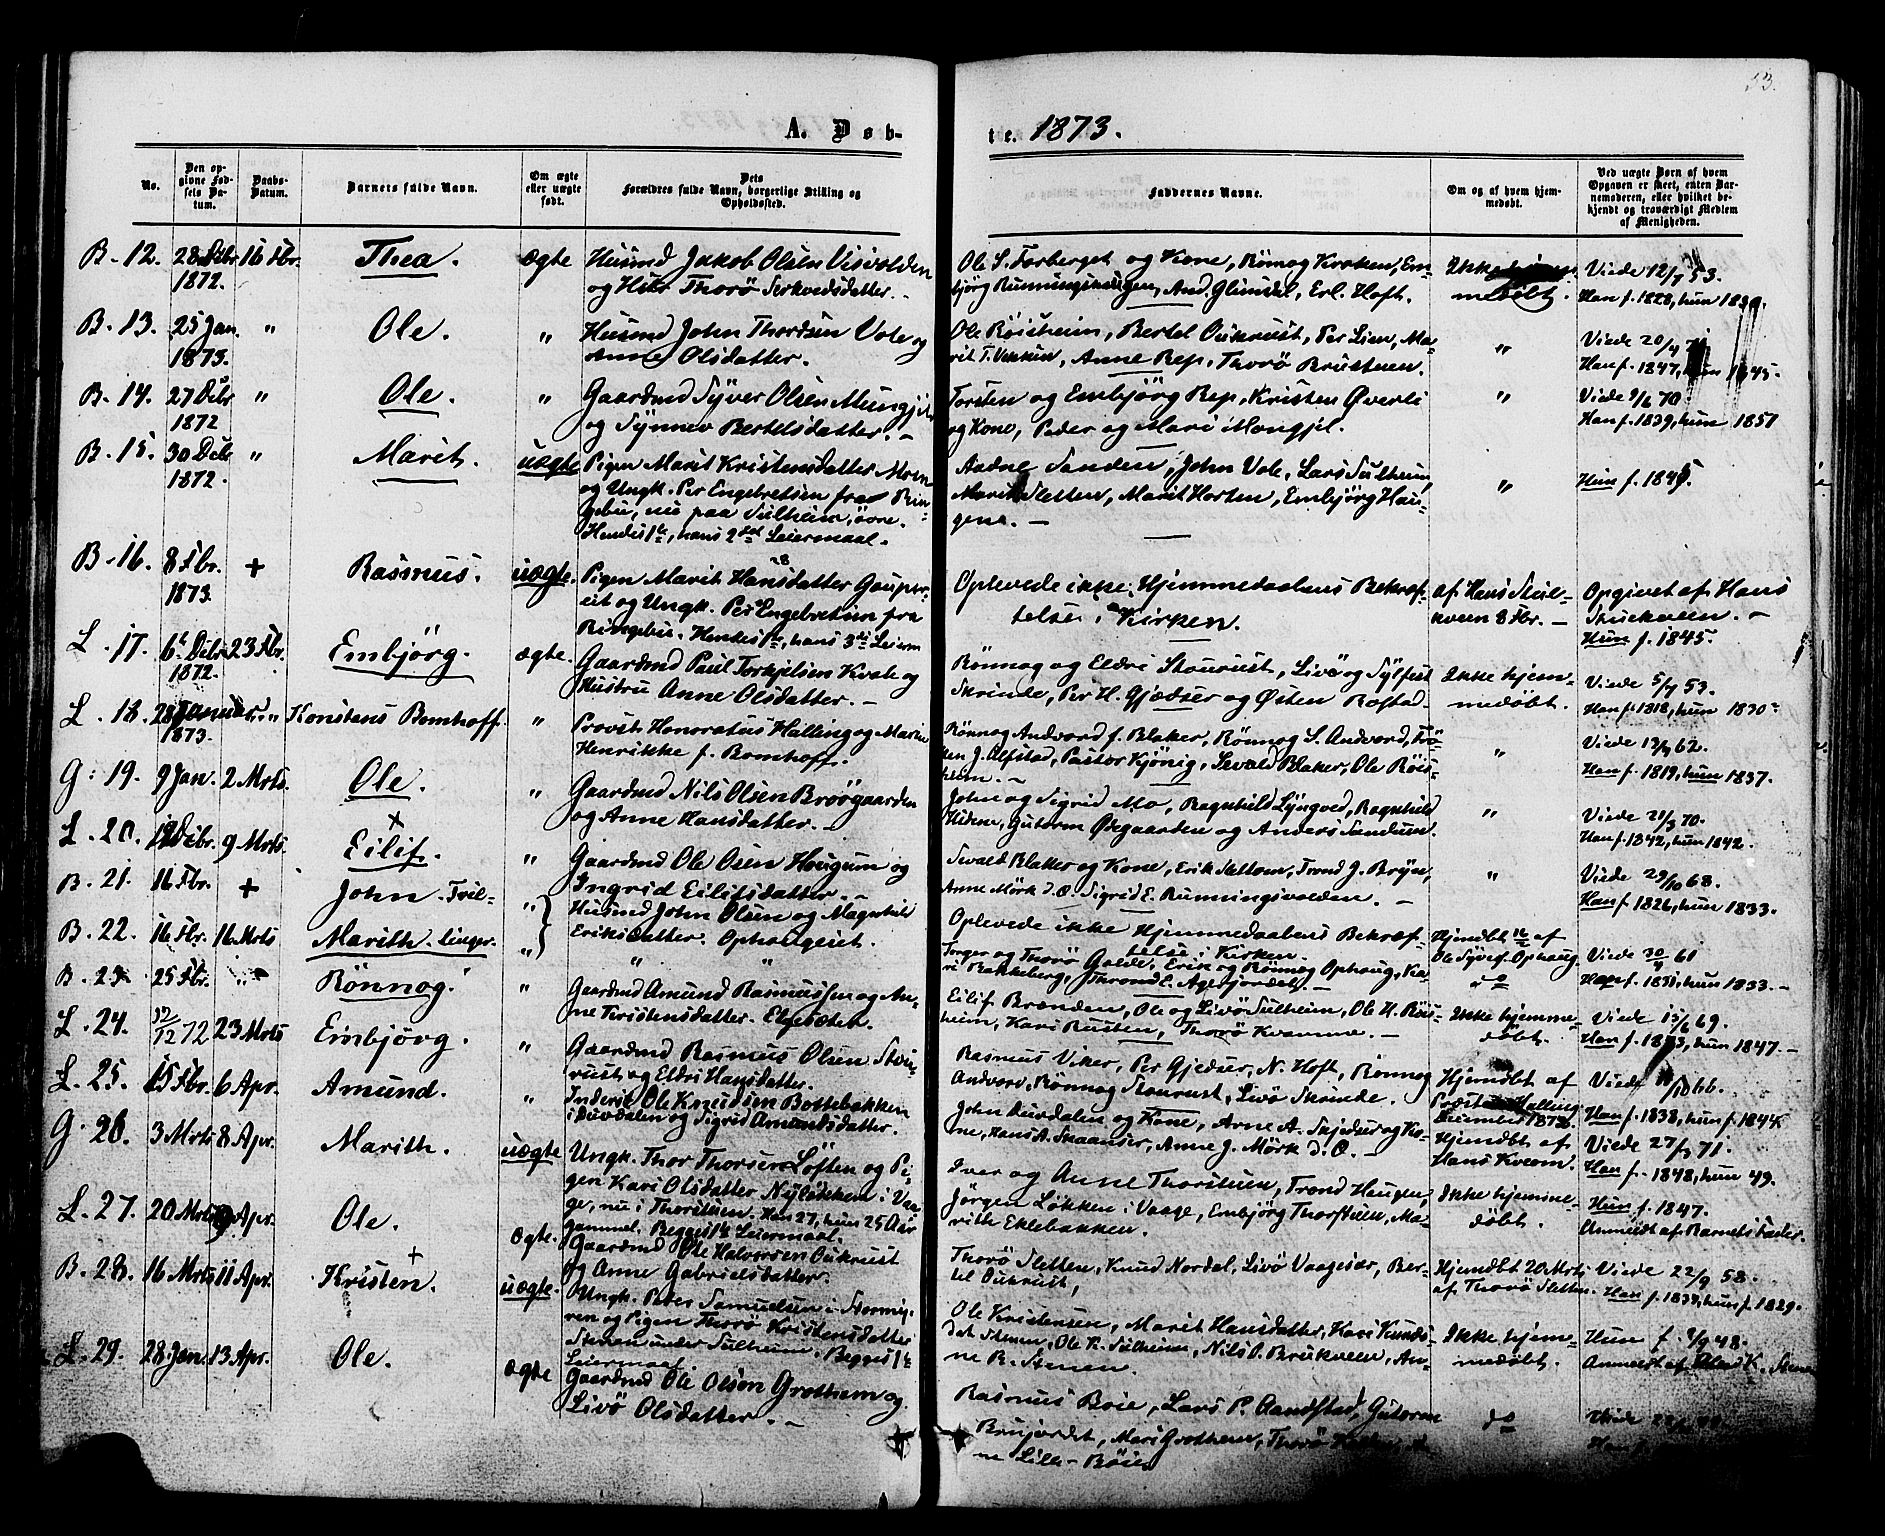 53.
A. Døb-
te. 1873.
No.
Den op-
givne Fød-
sels Da-
tum.
Daabs-
Datum.
Barnets fulde Navn.
Om ægte
eller uægte
født.
Dets
Forældres fulde Navn, borgerlige Stilling og
Opholdssted.
Faddernes Navne.
Om og af hvem hjem-
medøbt.
Ved uægte Børn af hvem
Opgaven er skeet, enten Bar-
nemoderen, eller hvilket be-
kjendt og troværdigt Medlem
af Menigheden.
B. 12. 28 Debr 1872. 16 Fbr. Thea. ægte
Husmd Jakob Olsen Visvolden
og Hstr Thorø
Ole S. Forberget og Kone, Rønnog Kroken, Em-
bjørg Runningshaugen, And. Glimsdal, Erl. Hoft.
Ikke
medøbt.
Viede 12/7 53.
Han f. 1828, hun 1830.
B. 13. 25 Jan. 1873. " Ole. "
Husmd John Thordsen Vole og
Anne Olsdatter.
Ole Røisheim, Bertel Oukrust, Per Lien, Ma-
rit T. Vekken, Anne Rep, Thorø Brustuen.
"
Viede 20/4 71
Han f. 1847, hun 1845.
B. 14. 27 Debr 1872 " Ole. "
Gaardmd Syver Olsen Mungjel
og Synnev Bertelsdatter. -
Torsten og Embjørg Rep, Kristen Øverli
og Kone, Peder og Mari Mongjel.
"
Viede 9/6 70.
Han f. 1839, hun 1851
B. 15. 30 Debr 1872. " Marit. uægte
Pigen Marit Kristensdatter Moen
og Ungk. Per Engebretsen fra Rin-
gebu, nu paa Sulheim, øvre.
Hendes 1ste, hans 2det Leiermaal.
Aadne Sanden, John Vole, Lars Sulheim,
Marit Sletten, Marit Horten, Embjørg Hau-
gene. -
"
Hun f. 1845.
B. 16. 8 Fbr. 1873. + Rasmus. uægte.
Pigen Marit Hansdatter Gauper-
eit og Ungk. Per Engebretsen fra
Ringebu. Hendes 1ste, hans 3die Leierm
Oplevede ikke Hjemmedaabens Bekræf-
telse i Kirken.
af Hans Stue-
kveen 8 Fbr. -
Opgivet af Hans
Stuekveen. -
Hun f. 1845.
L. 17. 6te Debr 1872. 23 Fbr. Embjørg. ægte.
Gaardmd Paul Torkjelsen Kvale og
Hustru Anne Olsdatter. -
Rønnog og Eldri Stourust, Livø og Sylfest
Skrinde, Per H. Gjædser og Østen Rofstad.
Ikke hjem-
medøbt.
Viede 5/7 53.
Han f. 1818, hun 1830.
L. 18. 28 Januar 1873. " Konstens Bomhoff. "
Provst Honoratus Halling og Maren
Henrikke f. Bomhoff.
Rønnog Andvord f. Blaker, Rønnog S. Andvord, Frø-
ken J. Alfstad, Pastor Kjønig, Sevald Blaker, Ole Røis-
heim. -
"
Viede 13/9 62.
Han f. 1819, hun 1837.
G: 19. 9 Jan. 2 Mrts. Ole. "
Gaardmd Nils Olsen Brøgaarden
og Anne Hansdatter. -
John og Sigrid Mo, Ragnhild Lyngved, Ragnhild
Hidem, Gutorm Ødegaarden og Anders Sundum.
"
Viede 21/3 70.
Han f. 1842, hun 1842.
L. 20. 12 Debr. 9 Mrts. Eilif. + "
Gaardmd Ole Osen Hougum og
Ingrid Eilifsdatter. -
Sevald Blakker og Kone, Erik Slettom, Trond J. Bryn,
Anne Mørk d. O. Sigrid E. Runningsvolden. -
"
Viede 29/10 68.
Han f. 1826, hun 1833.
B. 21. 16 Fbr. + John. Tvil- "
Husmd John Olsen og Magnhild
Eriksdatter. Ophougeiet.
Oplevede ikke Hjemmedaabens Bekræf-
telse i Kirken.
Hjemdbt 16 af
Ole Syvers. Ophaug.
Viede 30/9 61
Han f. 1831, hun 1833. -
B. 22. 16 Fbr. 16 Mrts Marith. linger. "
" "
Torger og Thorø Galde, Erik og Rønnog Ophaug, Ka-
ri Bakkeberg, Thrond E. Aaefjordet. -
do
B. 23. 25 Fbr. " Rønnog. "
Gaardmd Amund Rasmussen og An-
ne Kristensdatter.
Eilif Brænden, Ole og Livø Sulheim, Ole H. Røis-
heim, Kari Rusten, Thorø Kvamme. -
Ikke hjemme-
døbt.
Viede 15/6 69.
Han f. 1843, hun 1847. -
L. 24. 30/12 72 23 Mrts Embjørg. "
Gaardmd Rasmus Olsen Stou-
rust og Eldri Hansdatter.
Rasmus Viker, Per Gjedser, N. Hoft, Rønnog
Andvord, Rønnog Stourust, Livø Skrinde.
Hjemdbt af
Præsten Halling
Viede 11/10 66.
Han f. 1838, hun f. 1844.
L. 25. 15 Fbr. 6 Apr. Amund. "
Inderst Ole Knudsen Bottebakken
i Duvdalen og Sigrid Amundsdatter.
John Duvdalen og Kone, Arne A. Skjedser og Ko-
ne, Hans A. Skaanser, Anne J. Mørk d. O. -
Hjemdbt af
Hans Kveom.
Viede 27/3 71.
Han f. 1848, hun 49.
G. 26. 3 Mrts 8 Apr. Marith. uægte
Ungk. Thor Thorsen Løften og Pi-
gen Kari Olsdatter Nyløkken i Vaa-
ge, nu i Thorstuen. Han 27, hun 25 Aar
gammel. Begges 1ste Leiermaal.
Iver og Anne Thorstuen, Trond Haugen,
Jørgen Løkken i Vaage, Embjørg Thorstuen, Ma-
rith Eklebakken.
Ikke hjemme-
døbt.
Hun f. 1847.
Anmeldt af Barnets Fader.
L. 27. 20 Mrts 9 Apr. Ole. ægte.
Gaardmd Ole Halvorsen Oukrust
og Anne Gabrielsdatter.
Thorø Sletten, Knud Nordal, Livø Vaagesær, Ber-
tel Oukrust,
Hjemdbt 20 Mrts
af Thorø Sletten.
Viede 22/9 58.
Han f. 1833, hun f. 1829.
B. 28. 16 Mrts 11 Apr. Kristen. + uægte.
Ungk. Peter Samuelsen i
og Pigen Thorø Kristensdatter
under Sulheim. Begges 1ste
Leiermaal.
Ole Kristensen, Marit Hansdatter, Kari Knuds-
dat Stenen, Ole K. Sulheim, Nils O. Brukveen, An-
ne R. Stenen.
Ikke hjem-
medøbt.
Hun f. 48.
Anmeldt af
L. 29. 28 Jan. 13 Apr. Ole. ægte
Gaardmd Ole Olsen Grotheim og
Livø Olsdatter. -
Rasmus Bøie, Lars P. Aandstad, Gutorm
Brujordet, Mari Grotheim, Thorø
ne Lille-Bøie.
do
Viede
Han f.